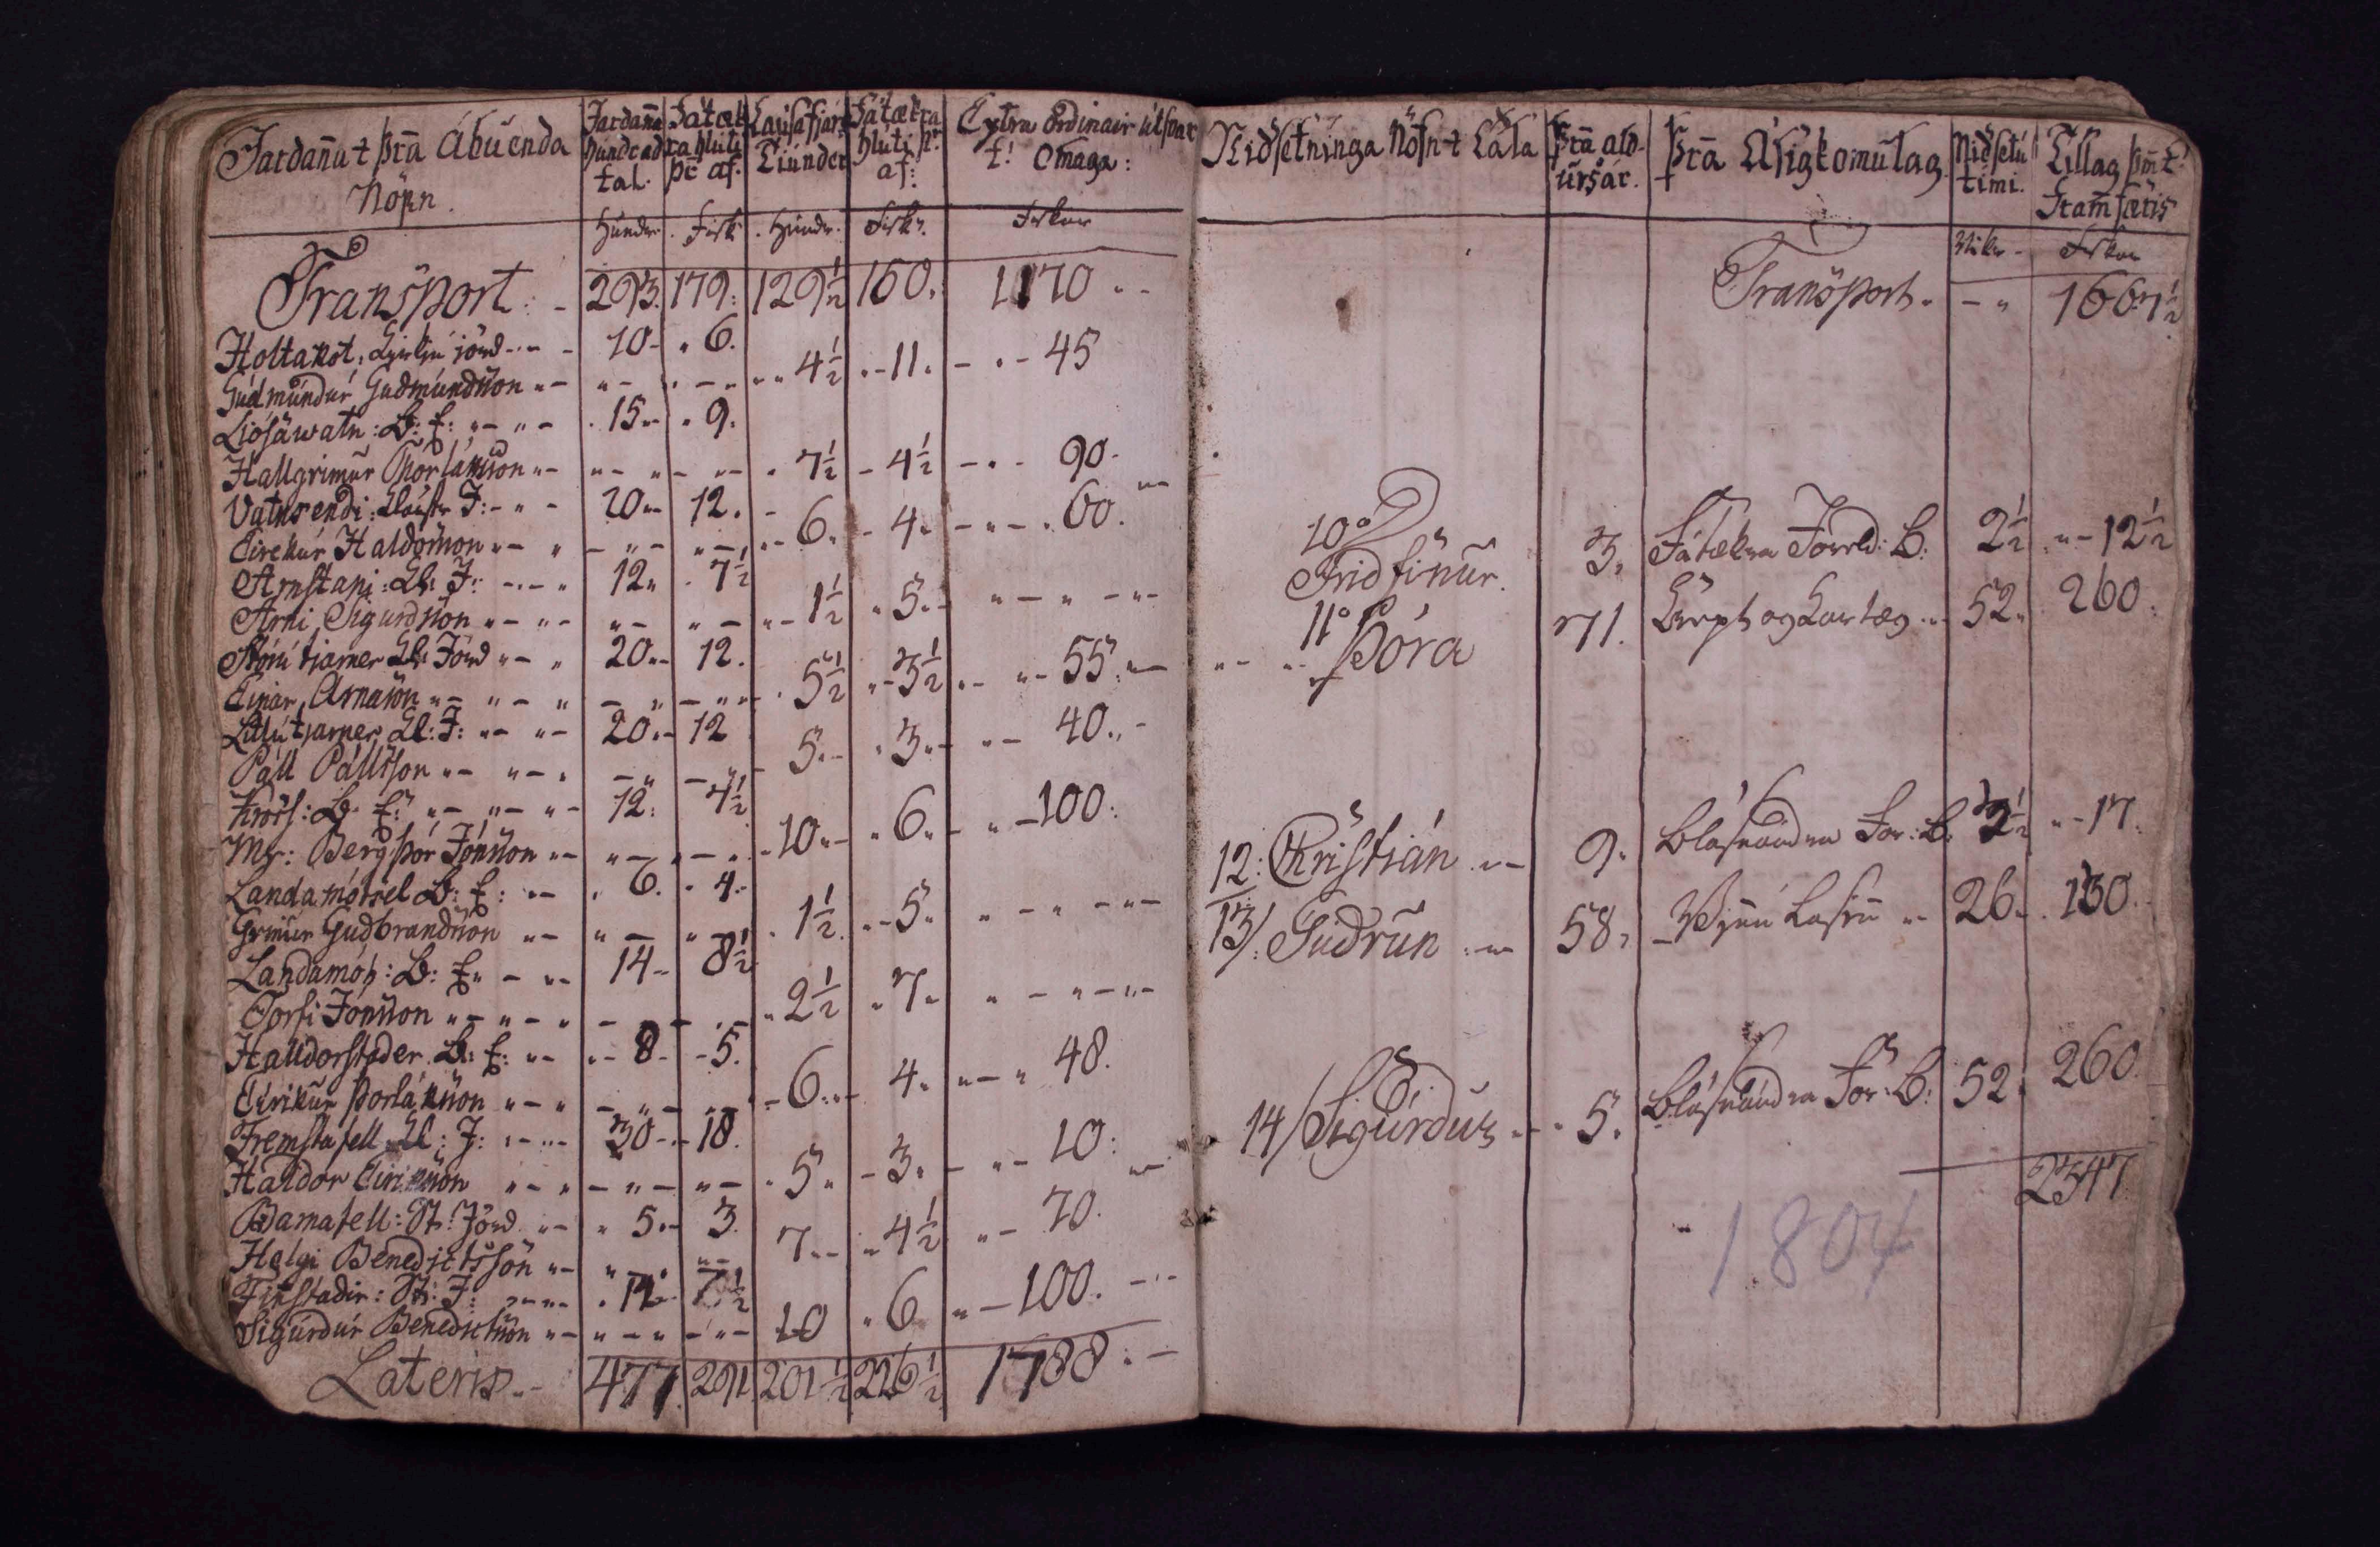 Jardaña + þr̃a Ábúenda
Nöpn.
Jardaña hundrad tal.
Fátækra hluti þr af.
Lausafjár Tiúnder
Fátækra hluti þr af:
Extra ordinair útsvar t! Omaga:
Hundr. Fisk. Hundr. Fiskr. Fiskar
Transport: - 293. 179: 129½ 160. 1170
Holtakot, jörd 10 6.
Gudmúndúr Gudmúndsson 4½ 11. 45
Liósáwatn: B: E: 15 9.
Hallgrimur Thorláksson 7½ 4½ 90
Vatnsendi: J: 20 12.
Eirekúr Haldorsson 6. 4 60.
Arnstapi: Kl: J: 12 7½
Arni Sigurdsson 1½ 5
Störu tjarner Kl: Jörd 20 12.
Einar Arnason 5½ 3½ 55
Litlu tjarner Kl: J: 20 12
Páll Pállsson 5 3 40
Kross: B: E: 12: 7½
Mr: Bergþór Jónsson 10 6 100:
Landamótssel B: E: 6. 4
Grimúr Gudbrandsson 1½ 5
Landamót: B: E 14 8½
Torfi Jónsson 2½ 7
Halldorstader B: E: 8 5.
Eirikur Þorláksson 6 4 48.
Fremstafell Kl: J: 30 18.
Haldor Eiriksson 5 3 10:
Barnafell: St: Jörd 5 3.
Helgi Benedictsson 7 4½ 70.
Finstadir: St: J: 12 7½
Sigúrdúr Benedictsson 10 6 100.
Lateris 477. 291 201½ 226½ 1788
Nidsetninga Nöfn + Tala
Þr̃a aldúrs ár.
Þr̃a Ásigkomúlag
Nidsetú timi.
Tillag þm̃ t! Fram̃færis
Vikur Fiskar
Transport. 1667½
10°
Fridfinur. 3. Fátækra Foreld: B: 2½ 12½
11°
Þóra 71. og 52. 260.
12: Christián 9. Blásnaudra For: B: 3½ 17.
13/: Gudrún 58. 26 130.
14/ Sigúrdur 5. Blásnaudra For: B: 52. 260
2347
1804